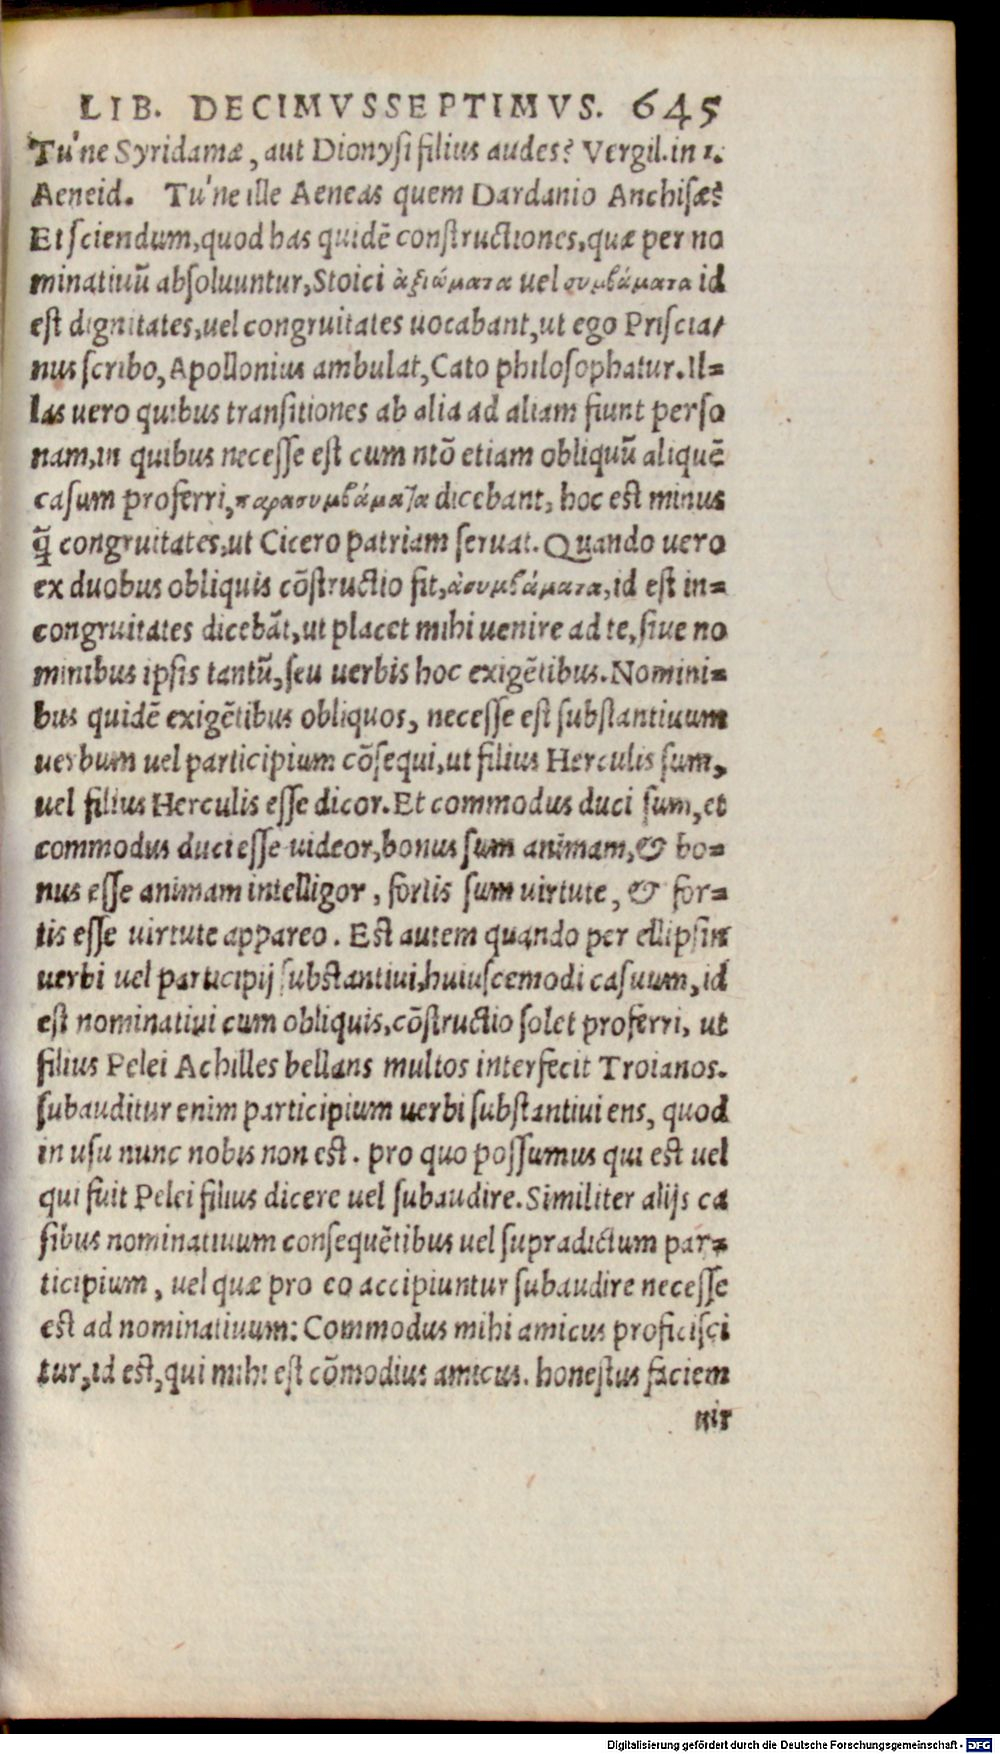 LIB. DECIMVSSEPTIMVS. 645
Tu'ne Syridamæ, aut Dionysi filius audes? Vergil. in 1.
Aeneid. Tu'ne ille Aeneas quem Dardanio Anchisæ?
Et sciendum, quod has quidē constructiones, quæ per no
minatiuū absoluuntur, Stoici ἀξιώματα uel συμβάματα id
est dignitates, uel congruitates uocabant, ut ego Priscia/
nus scribo, Apollonius ambulat, Cato philosophatur. Il=
las uero quibus transitiones ab alia ad aliam fiunt perso
nam, in quibus necesse est cum ntō etiam obliquū aliquē
casum proferri, παρασυμβάματα dicebant, hoc est minus
q̄ congruitates, ut Cicero patriam seruat. Quando uero
ex duobus obliquis cōstructio fit, ἀσυμβάματα, id est in=
congruitates dicebāt, ut placet mihi uenire ad te, siue no
minibus ipsis tantū, seu uerbis hoc exigētibus. Nomini=
bus quidē exigētibus obliquos, necesse est substantiuum
uerbum uel participium cōsequi, ut filius Herculis sum,
uel filius Herculis esse dicor. Et commodus duci sum, et
commodus duci esse uideor, bonus sum animam, & bo=
nus esse animam intelligor, fortis sum uirtute, & for=
tis esse uirtute appareo. Est autem quando per ellipsin
uerbi uel participij substantiui, huiuscemodi casuum, id
est nominatiui cum obliquis, cōstructio solet proferri, ut
filius Pelei Achilles bellans multos interfecit Troianos.
subauditur enim participium uerbi substantiui ens, quod
in usu nunc nobis non est. pro quo possumus qui est uel
qui fuit Pelei filius dicere uel subaudire. Similiter alijs ca
sibus nominatiuum consequētibus uel supradictum par=
ticipium, uel quæ pro eo accipiuntur subaudire necesse
est ad nominatiuum: Commodus mihi amicus proficisci
tur, id est, qui mihi est cōmodius amicus. honestus faciem
uir
Digitalisierung gefördert durch die Deutsche Forschungsgemeinschaft - DFG